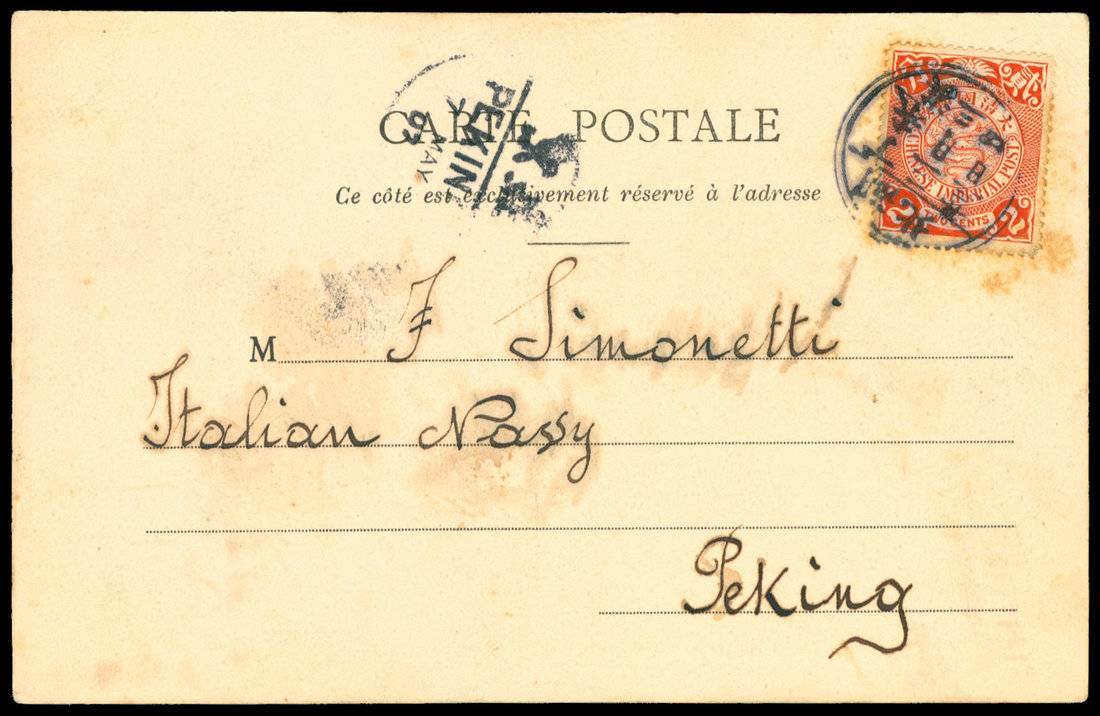 CARTE POSTALE
Ce côté est exclusivement réservé à l'adresse
PEKIN
MAY
大清
CHINESE IMPERIAL POST
2 TWO CENTS 2
M F Simonetti
Italian Nassy
Peking